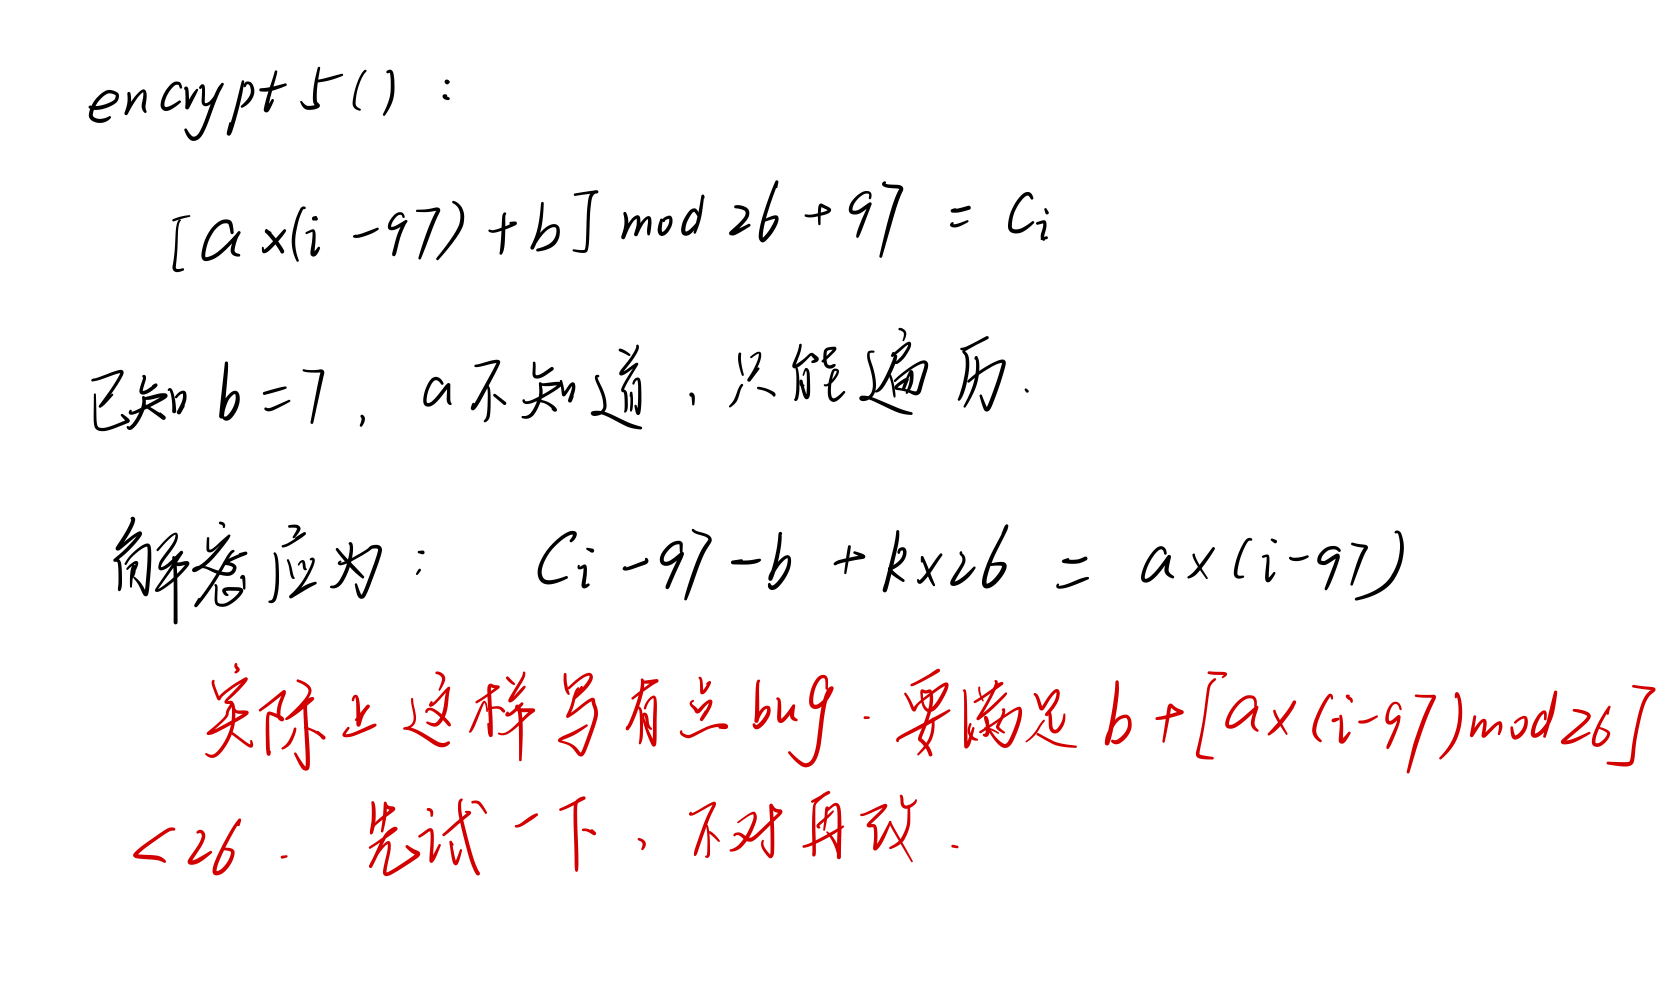 encrypt5() :
[a×(i-97)+b] mod 26+97 = Ci
已知 b=7, a不知道,只能遍历.
解密应为: Ci-97-b+k×26 = a×(i-97)
实际上这样写有点bug. 要满足 b+[a×(i-97)mod26]
<26. 先试一下,不对再改.